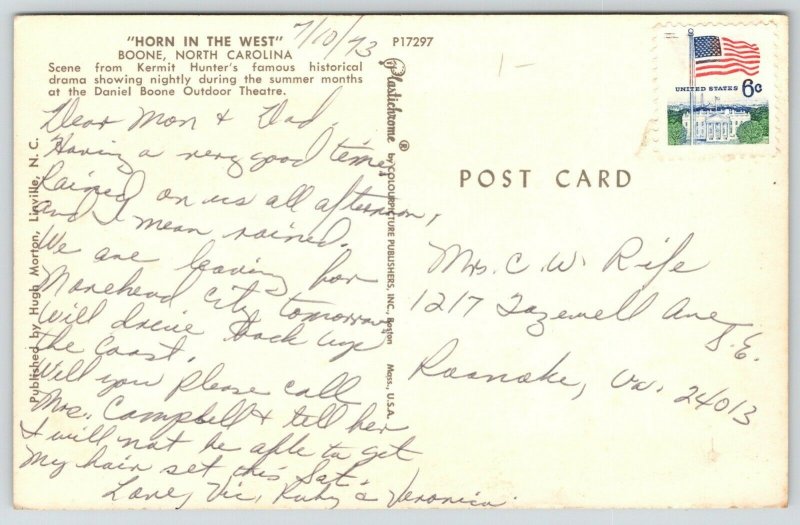 "HORN IN THE WEST"
BOONE, NORTH CAROLINA
Scene from Kermit Hunter's famous historical
drama showing nightly during the summer months
at the Daniel Boone Outdoor Theatre.
7/10/73
P17297
UNITED STATES 6c
POST CARD
Dear Mom & Dad,
Having a very good time,
Rained on us all afternoon,
and I mean rained.
We are leaving for
Morehead City tomorrow
Will drive back up
the coast.
Will you please call
Mrs. Campbell & tell her
I will not be able to get
my hair set this Sat.
Love, Vic, Ruby & Veronica.
Mrs. C. W. Rife
1217 Tazewell Ave
S.E.
Roanoke, Va. 24013
Published by Hugh Morton, Linville, N. C.
Plastichrome ® by COLOURPICTURE PUBLISHERS, INC., Boston Mass., U.S.A.